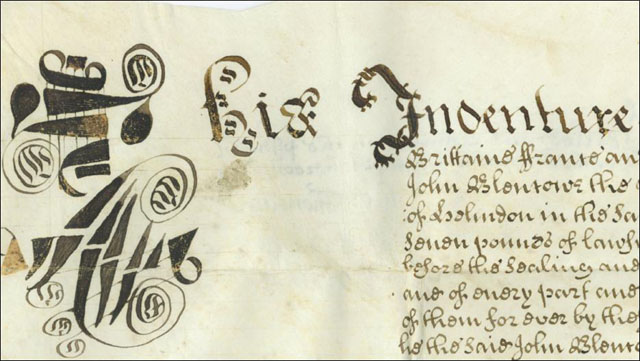 This Indenture
Brittaine ffrance an
John Blentowe the
of in the Sa
Seuen pounds of lawf
before the Sealing and
and of euery part and
of them for ever by the
he the Said John Blento